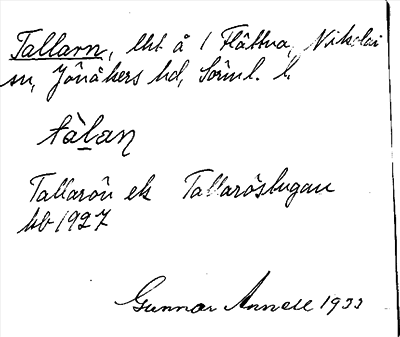 Tallarn, lht å 1 Flättna, Nikolai
sn, Jönåkers hd, Söml. l.
tàlaṇ
Tallarön ek Tallaröstugan
hb 1927
Gunnar Annell 1933